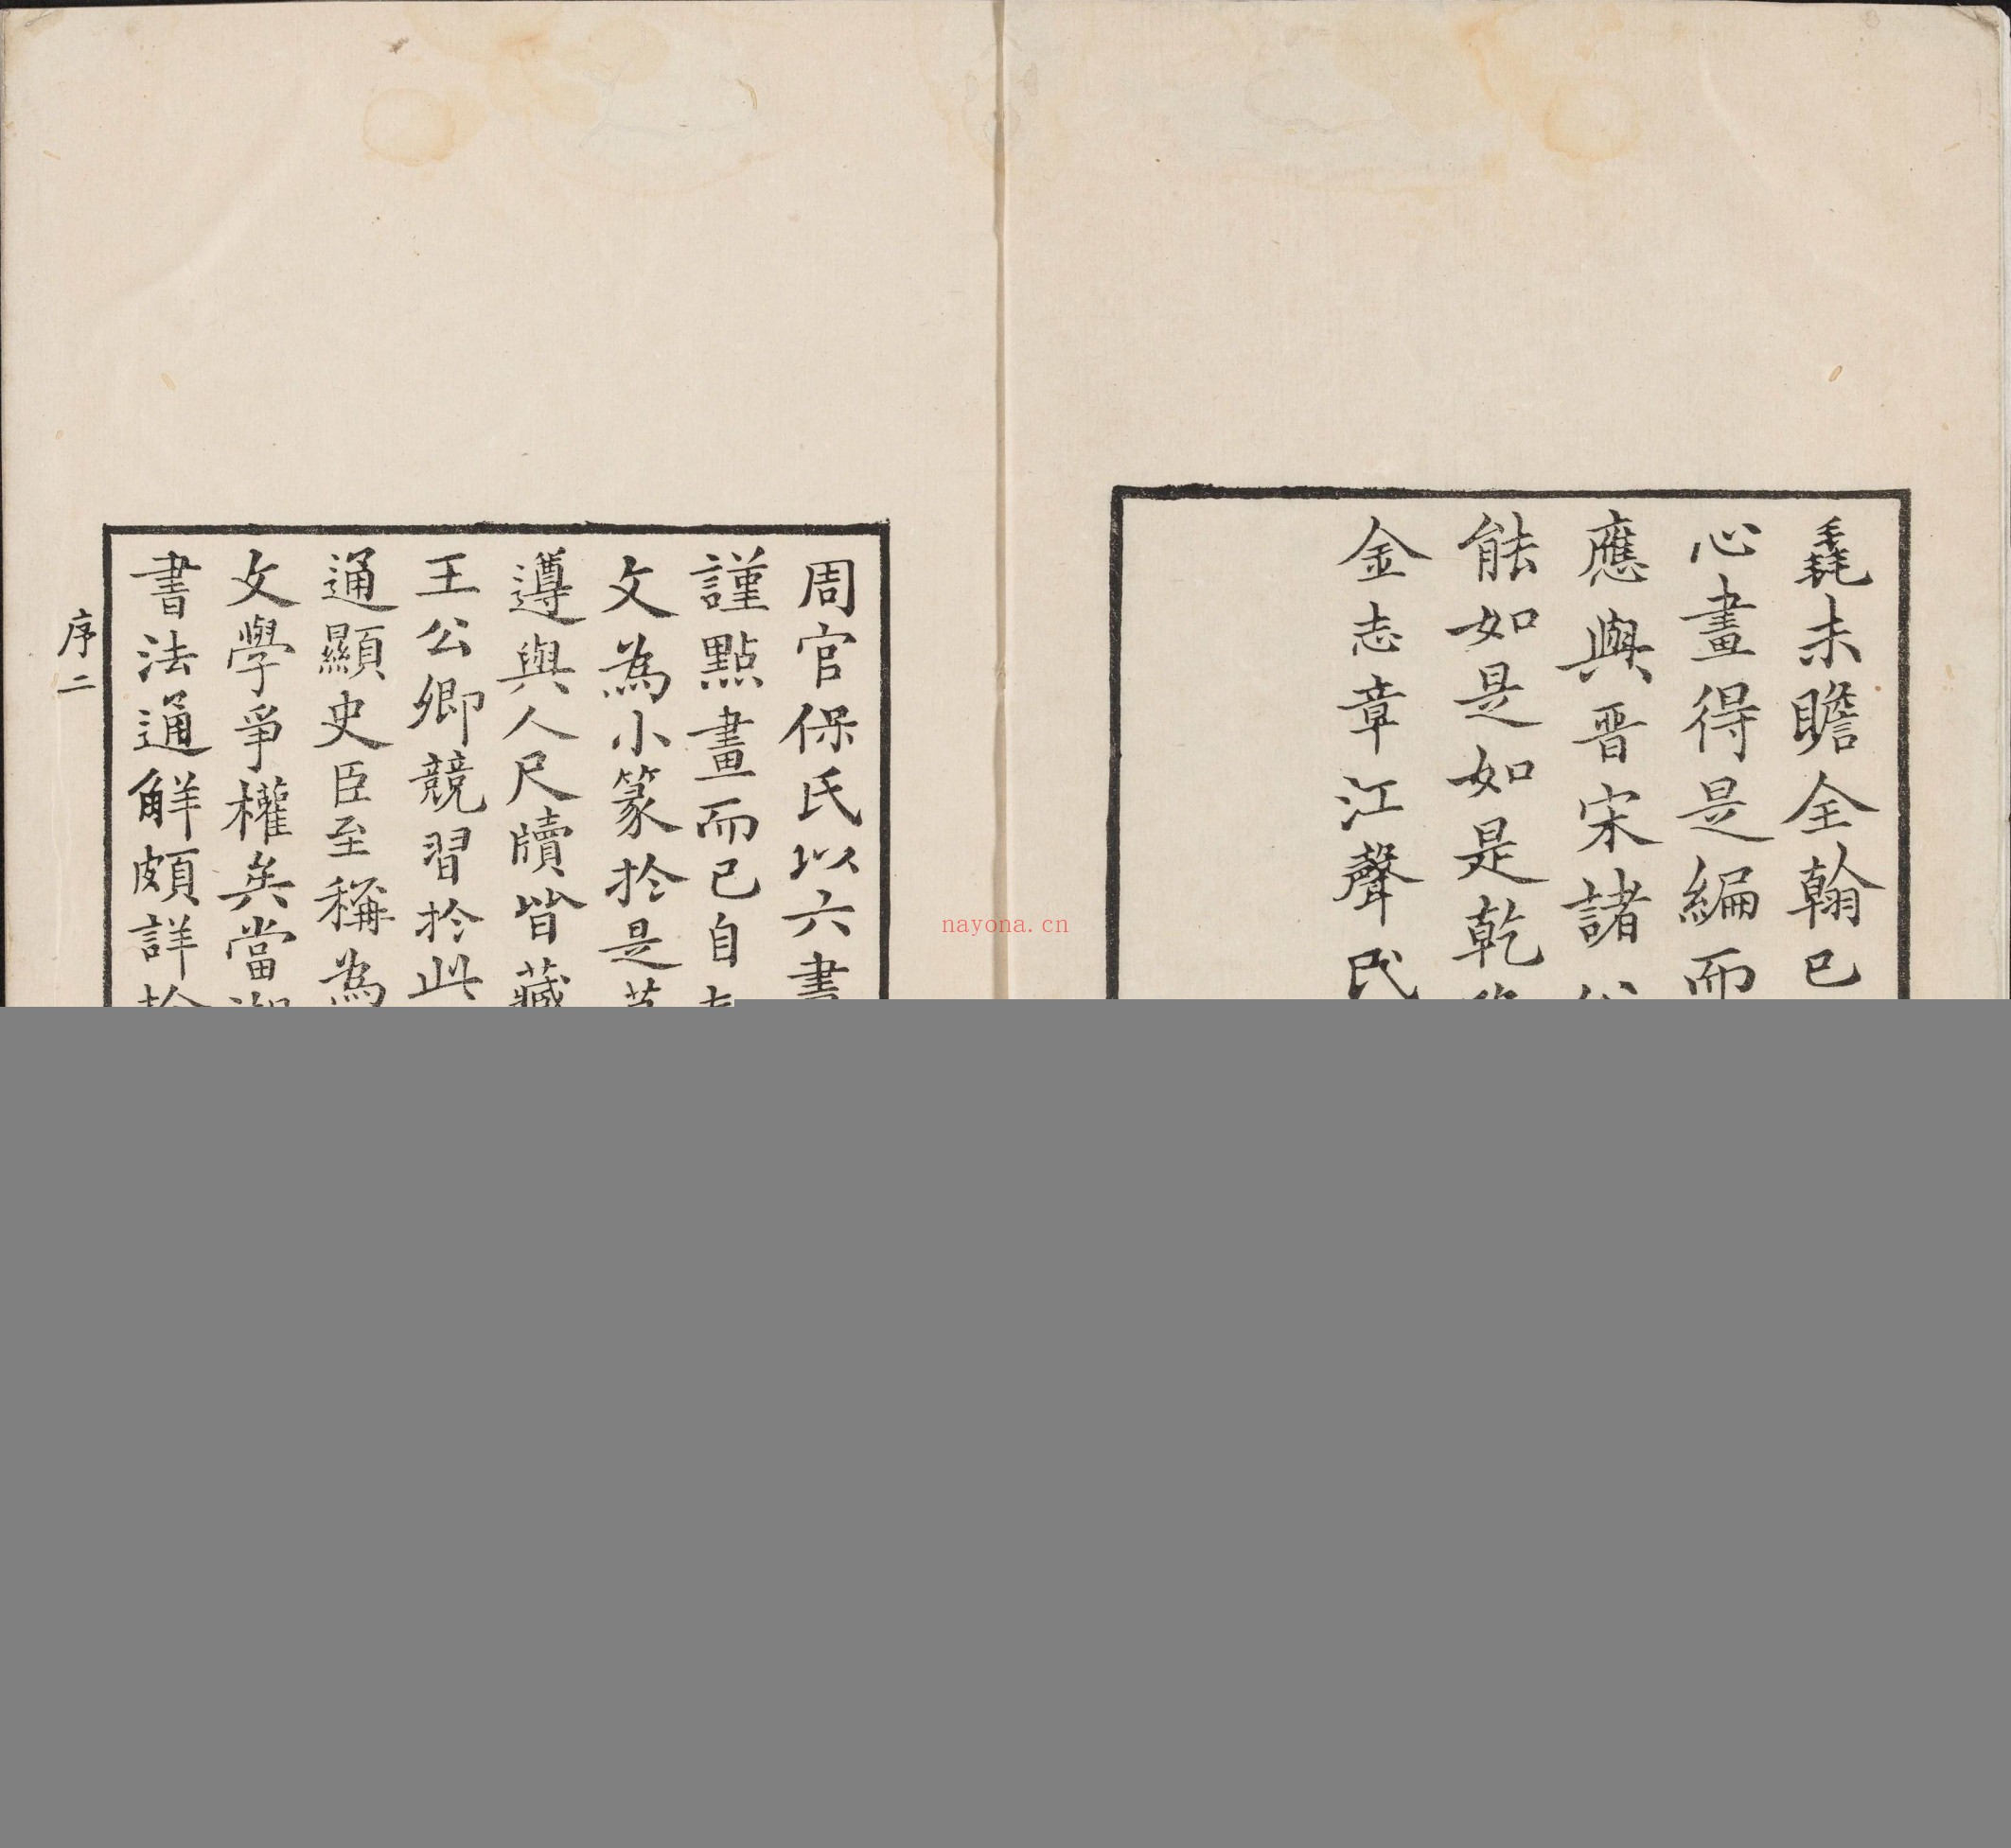 毳未瞻全翰已
心畫得是編而
應與晉宋諸
能如是如是乾
金志章江聲氏
周官保氏以六書
謹點畫而已自
文為小篆於是
遵與人尺牘皆藏
王公卿競習於此
通顯史臣至稱為
文學爭權矣當
書法通解頗詳
序二
nayona.cn